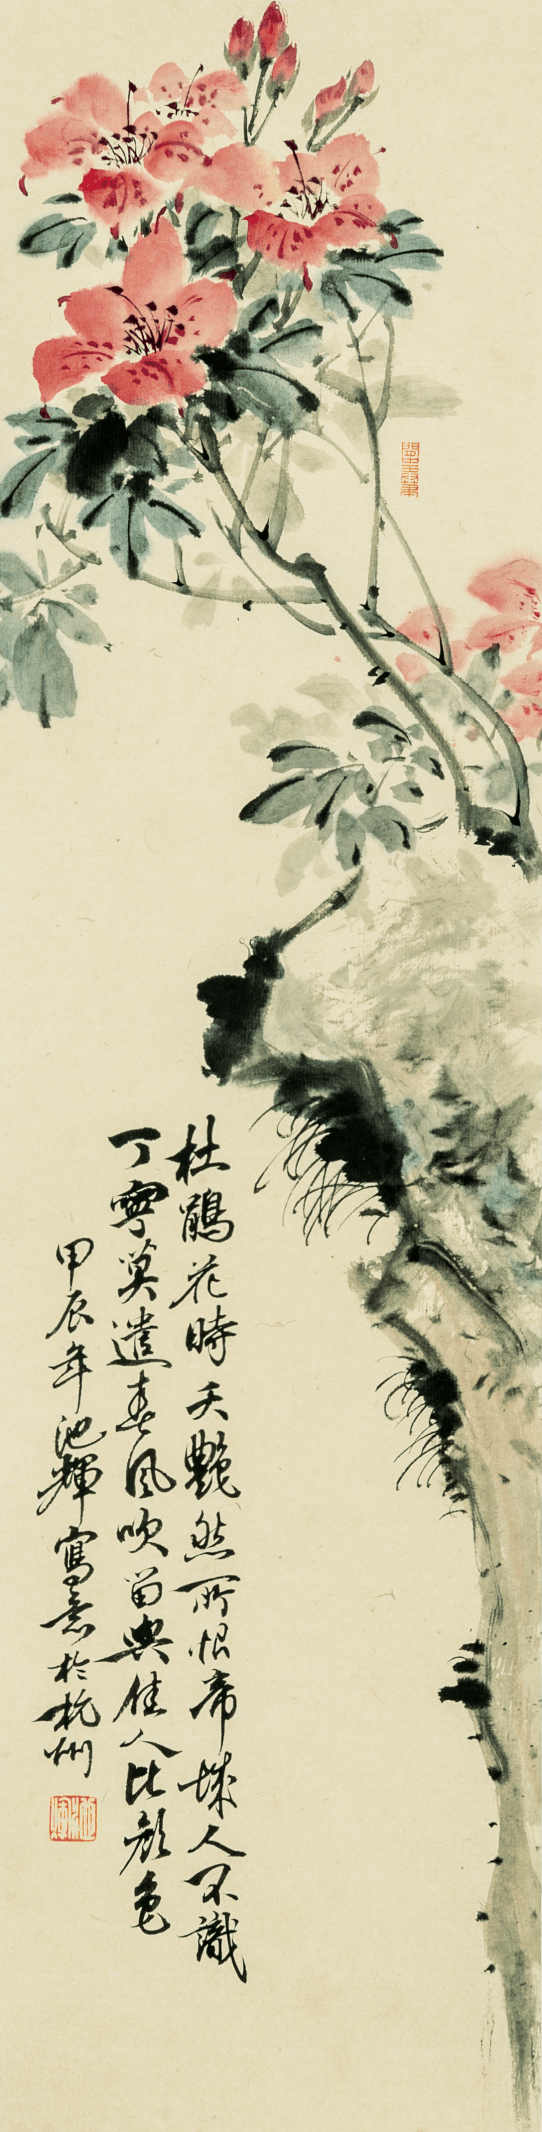 杜鵑花時夭艷然所恨帝城人不識
丁寧莫遣春風吹留與佳人比顏色
甲辰年池輝寫意於杭州